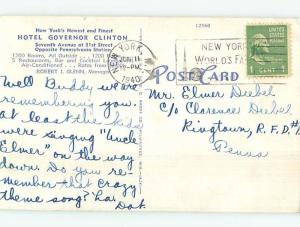 New York's Newest and Finest
HOTEL GOVERNOR CLINTON
Seventh Avenue at 31st Street
Opposite Pennsylvania Station
1200 Rooms, All Outside
Restaurants, Bar and Cocktail
Air-Conditioned
ROBERT J. GUNN, Manager
12560
NEW YORK,
JUN 11
-PM
1940
NEW YORK
WORLD'S FA
1 CENT 1
POST CARD
Well Buddy we are
remembering you.
at least the kids
were singing "Uncle
Elmer" on the way
down. Do you re-
member that crazy
theme song? Lai
Dot.
Mr. Elmer Diebel
c/o Clarence Diebel
Ringtown, R.F.D. #1
Penna